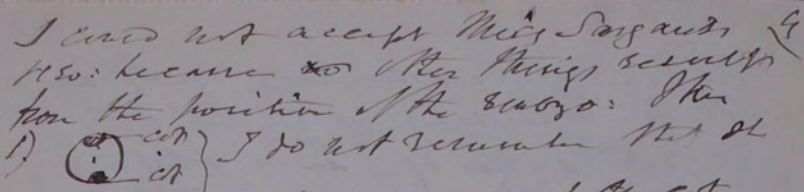 I could not accept Miss Sargant's
theo: because other things results
from the position of the embryo: the
1) cot cot } I do not remember that she